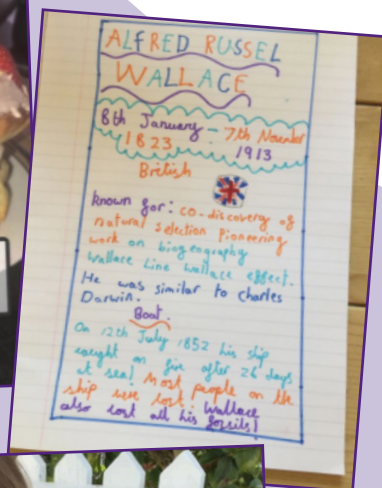 ALFRED RUSSEL
WALLACE
8th January - 7th November
1823 1913
British
known for: co-discovery of
natural selection Pioneering
work on biogeography
Wallace Line Wallace effect.
He was similar to Charles
Darwin.
Boat.
On 12th July 1852 his ship
caught on fire after 26 days
at sea! Most people on the
ship were lost. Wallace
also lost all his fossils!